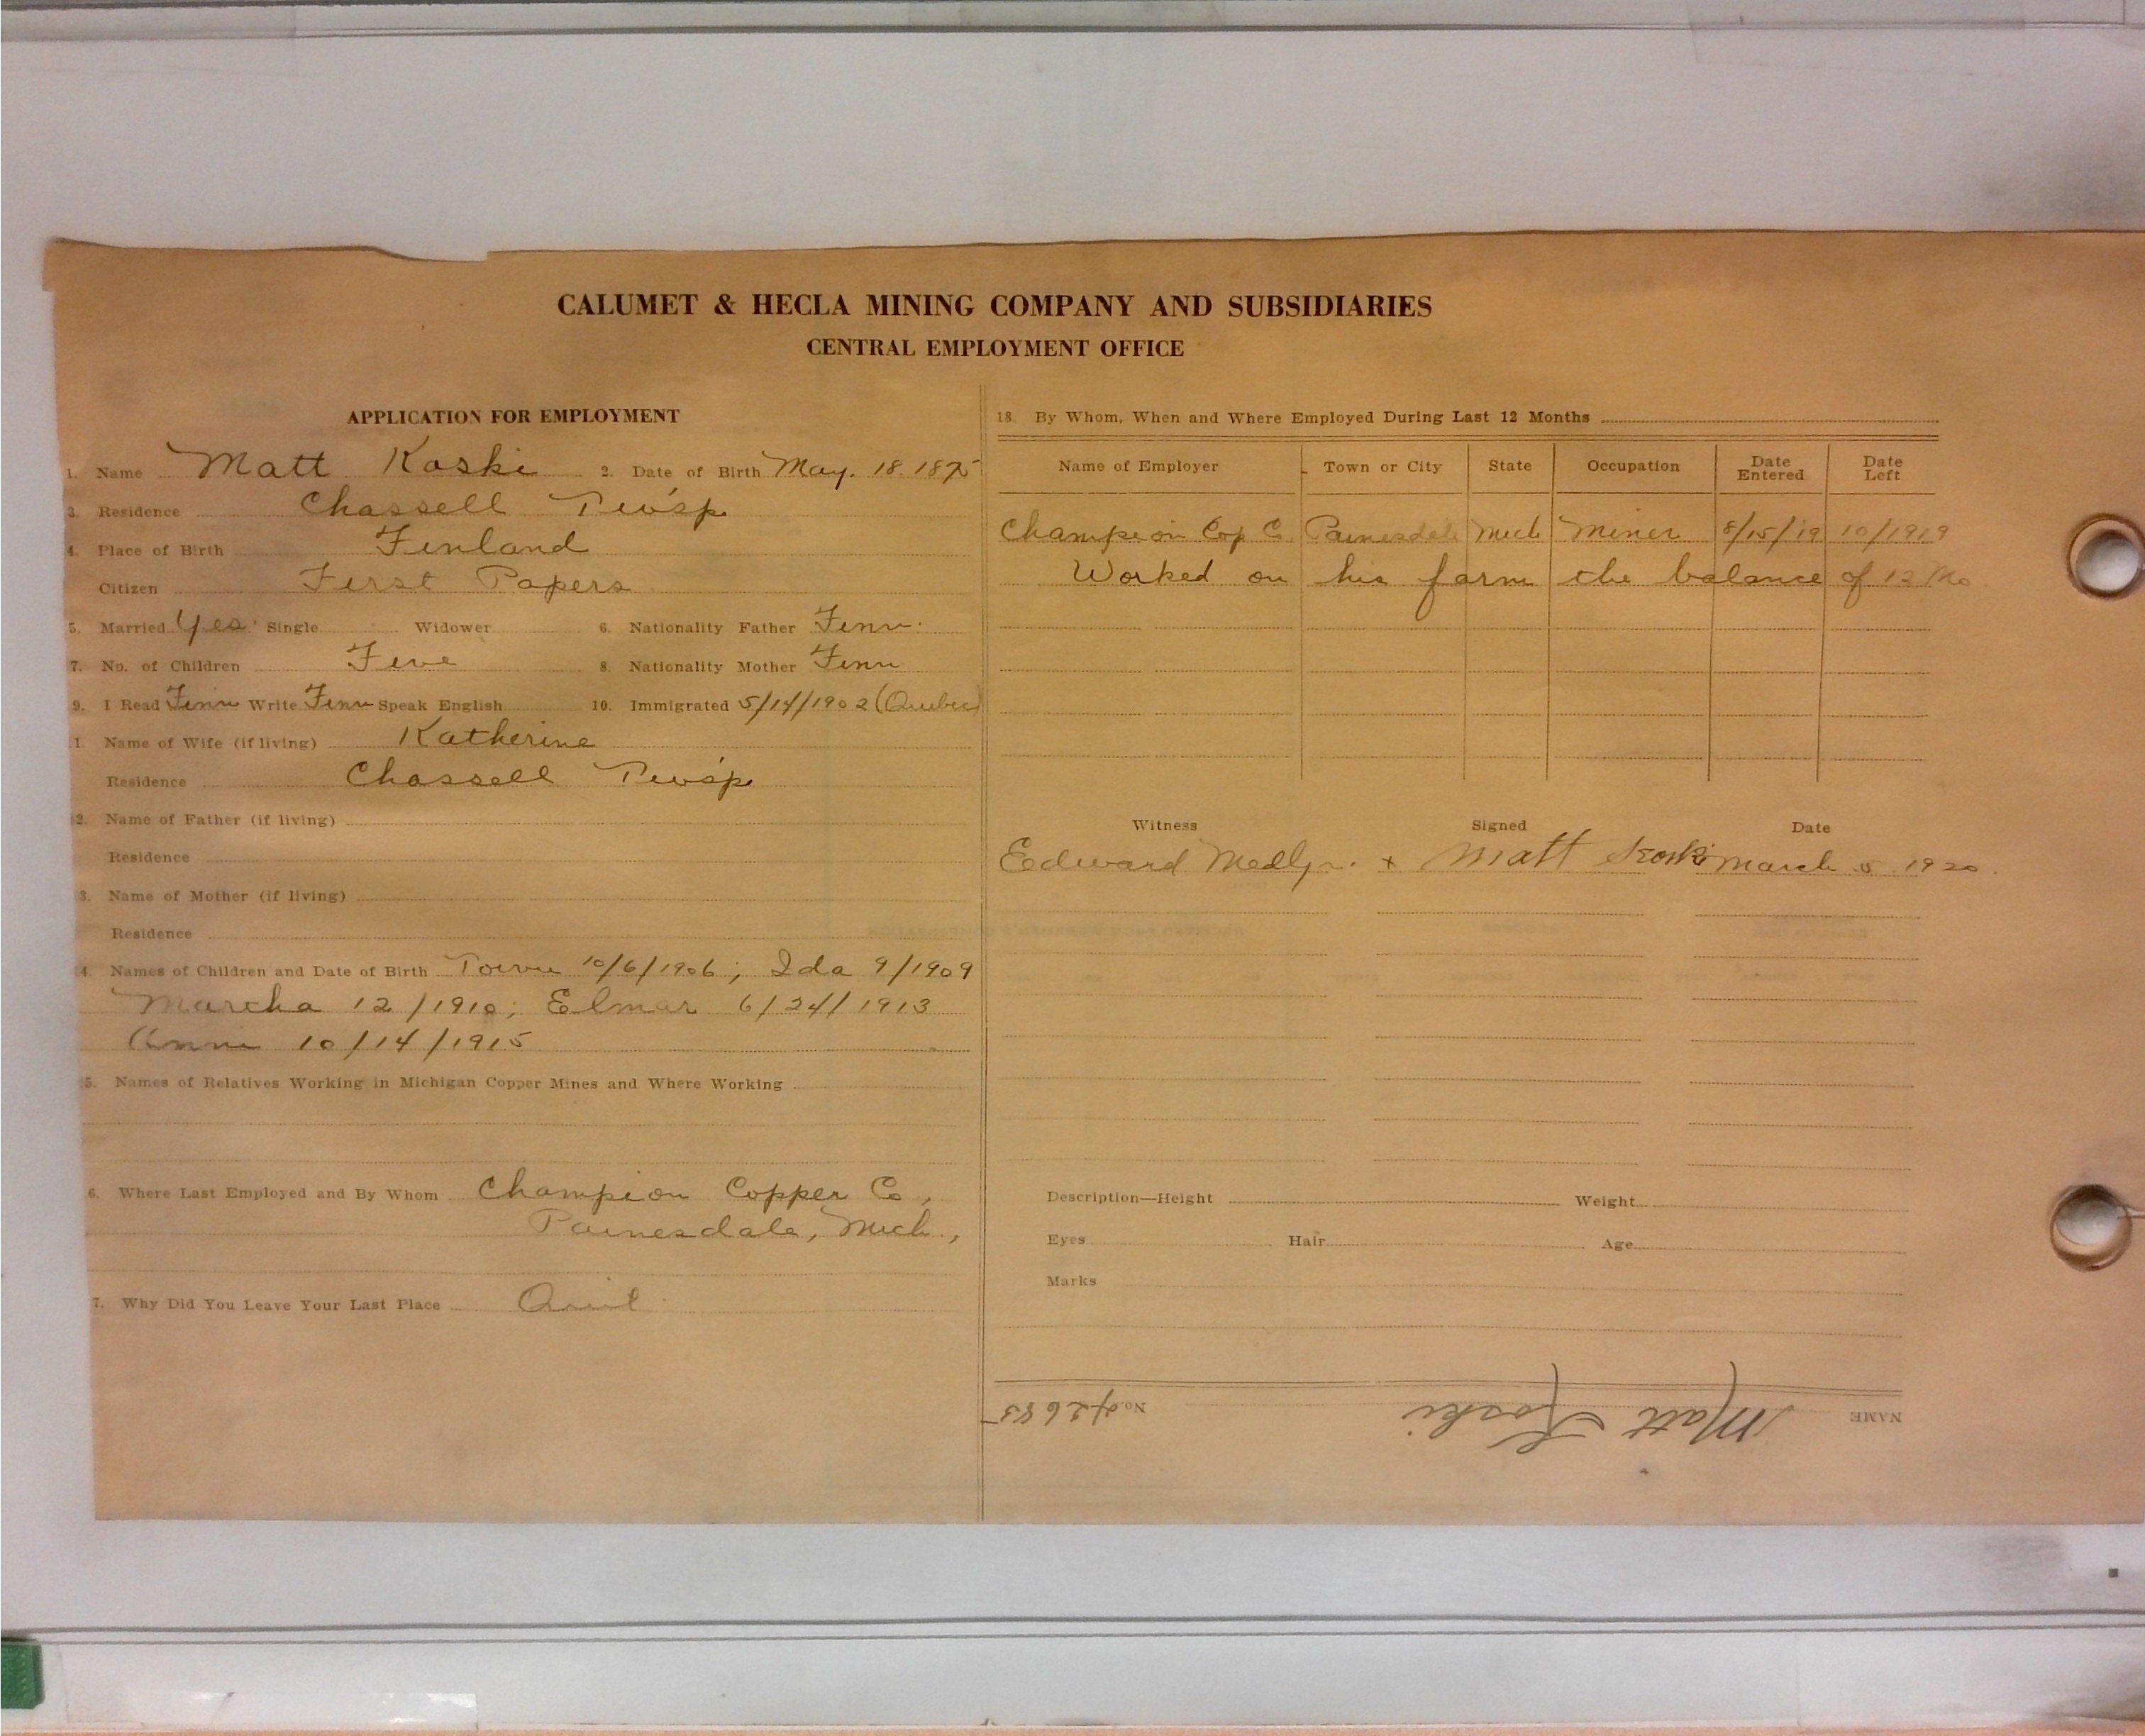 CALUMET & HECLA MINING COMPANY AND SUBSIDIARIES
CENTRAL EMPLOYMENT OFFICE
APPLICATION FOR EMPLOYMENT
1. Name Matt Koski 2. Date of Birth May. 18. 1875
3. Residence Chassell Tw'sp
4. Place of Birth Finland
Citizen First Papers
5. Married Yes Single Widower 6. Nationality Father Finn.
7. No. of Children Five 8. Nationality Mother Finn
9. I Read Finn Write Finn Speak English 10. Immigrated 5/14/1902 (Quebec)
1. Name of Wife (if living) Katherine
Residence Chassell Tw'sp
2. Name of Father (if living)
Residence
3. Name of Mother (if living)
Residence
4. Names of Children and Date of Birth 10/6/1906; Ida 9/1909
Martha 12/1910; Elmar 6/24/1913
10/14/1915
5. Names of Relatives Working in Michigan Copper Mines and Where Working
6. Where Last Employed and By Whom Champion Copper Co,
Painesdale, Mich.,
7. Why Did You Leave Your Last Place Quit
18. By Whom, When and Where Employed During Last 12 Months
Name of Employer Town or City State Occupation Date Entered Date Left
Champion Cop C Painesdale Mich Miner 8/15/19 10/1919
Worked on his farm the balance of 12 Mo
Witness Signed Date
Edward x Matt Koski March 5 1920
Description—Height Weight
Eyes Hair Age
Marks
NAME Matt Koski No. 42683